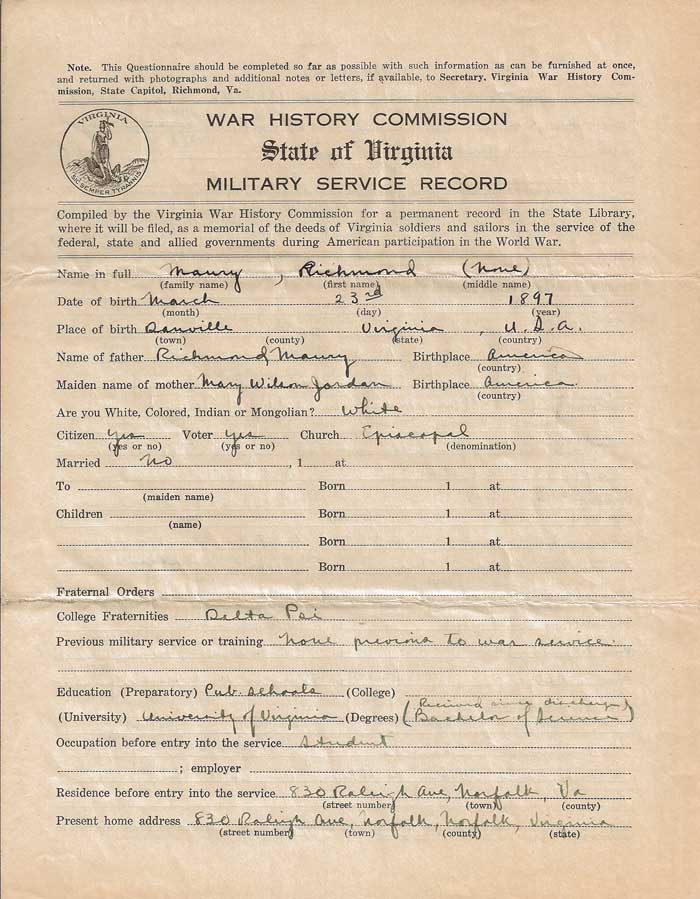 Note. This Questionnaire should be completed so far as possible with such information as can be furnished at once,
and returned with photographs and additional notes or letters, if available, to Secretary. Virginia War History Com-
mission, State Capitol, Richmond, Va.
VIRGINIA
SIC SEMPER TYRANNIS
WAR HISTORY COMMISSION
State of Virginia
MILITARY SERVICE RECORD
Compiled by the Virginia War History Commission for a permanent record in the State Library,
where it will be filed, as a memorial of the deeds of Virginia soldiers and sailors in the service of the
federal, state and allied governments during American participation in the World War.
Name in full Maury , Richmond (None)
(family name) (first name) (middle name)
Date of birth March 23rd 1897
(month) (day) (year)
Place of birth Danville Virginia , U.S.A.
(town) (county) (state) (country)
Name of father Richmond Maury Birthplace America
(country)
Maiden name of mother Mary Wilson Jordan Birthplace America
(country)
Are you White, Colored, Indian or Mongolian? White
Citizen Yes Voter yes Church Episcopal
(yes or no) (yes or no) (denomination)
Married No , 1 at
To Born 1 at
(maiden name)
Children Born 1 at
(name)
Born 1 at
Born 1 at
Fraternal Orders
College Fraternities Delta Psi
Previous military service or training None previous to war service.
Education (Preparatory) Pub. schools (College)
(University) University of Virginia (Degrees) (Received since discharge Bachelor of Science)
Occupation before entry into the service student
; employer
Residence before entry into the service 830 Raleigh Ave, Norfolk, Va
(street number) (town) (county)
Present home address 830 Raleigh Ave, Norfolk, Norfolk, Virginia
(street number) (town) (county) (state)